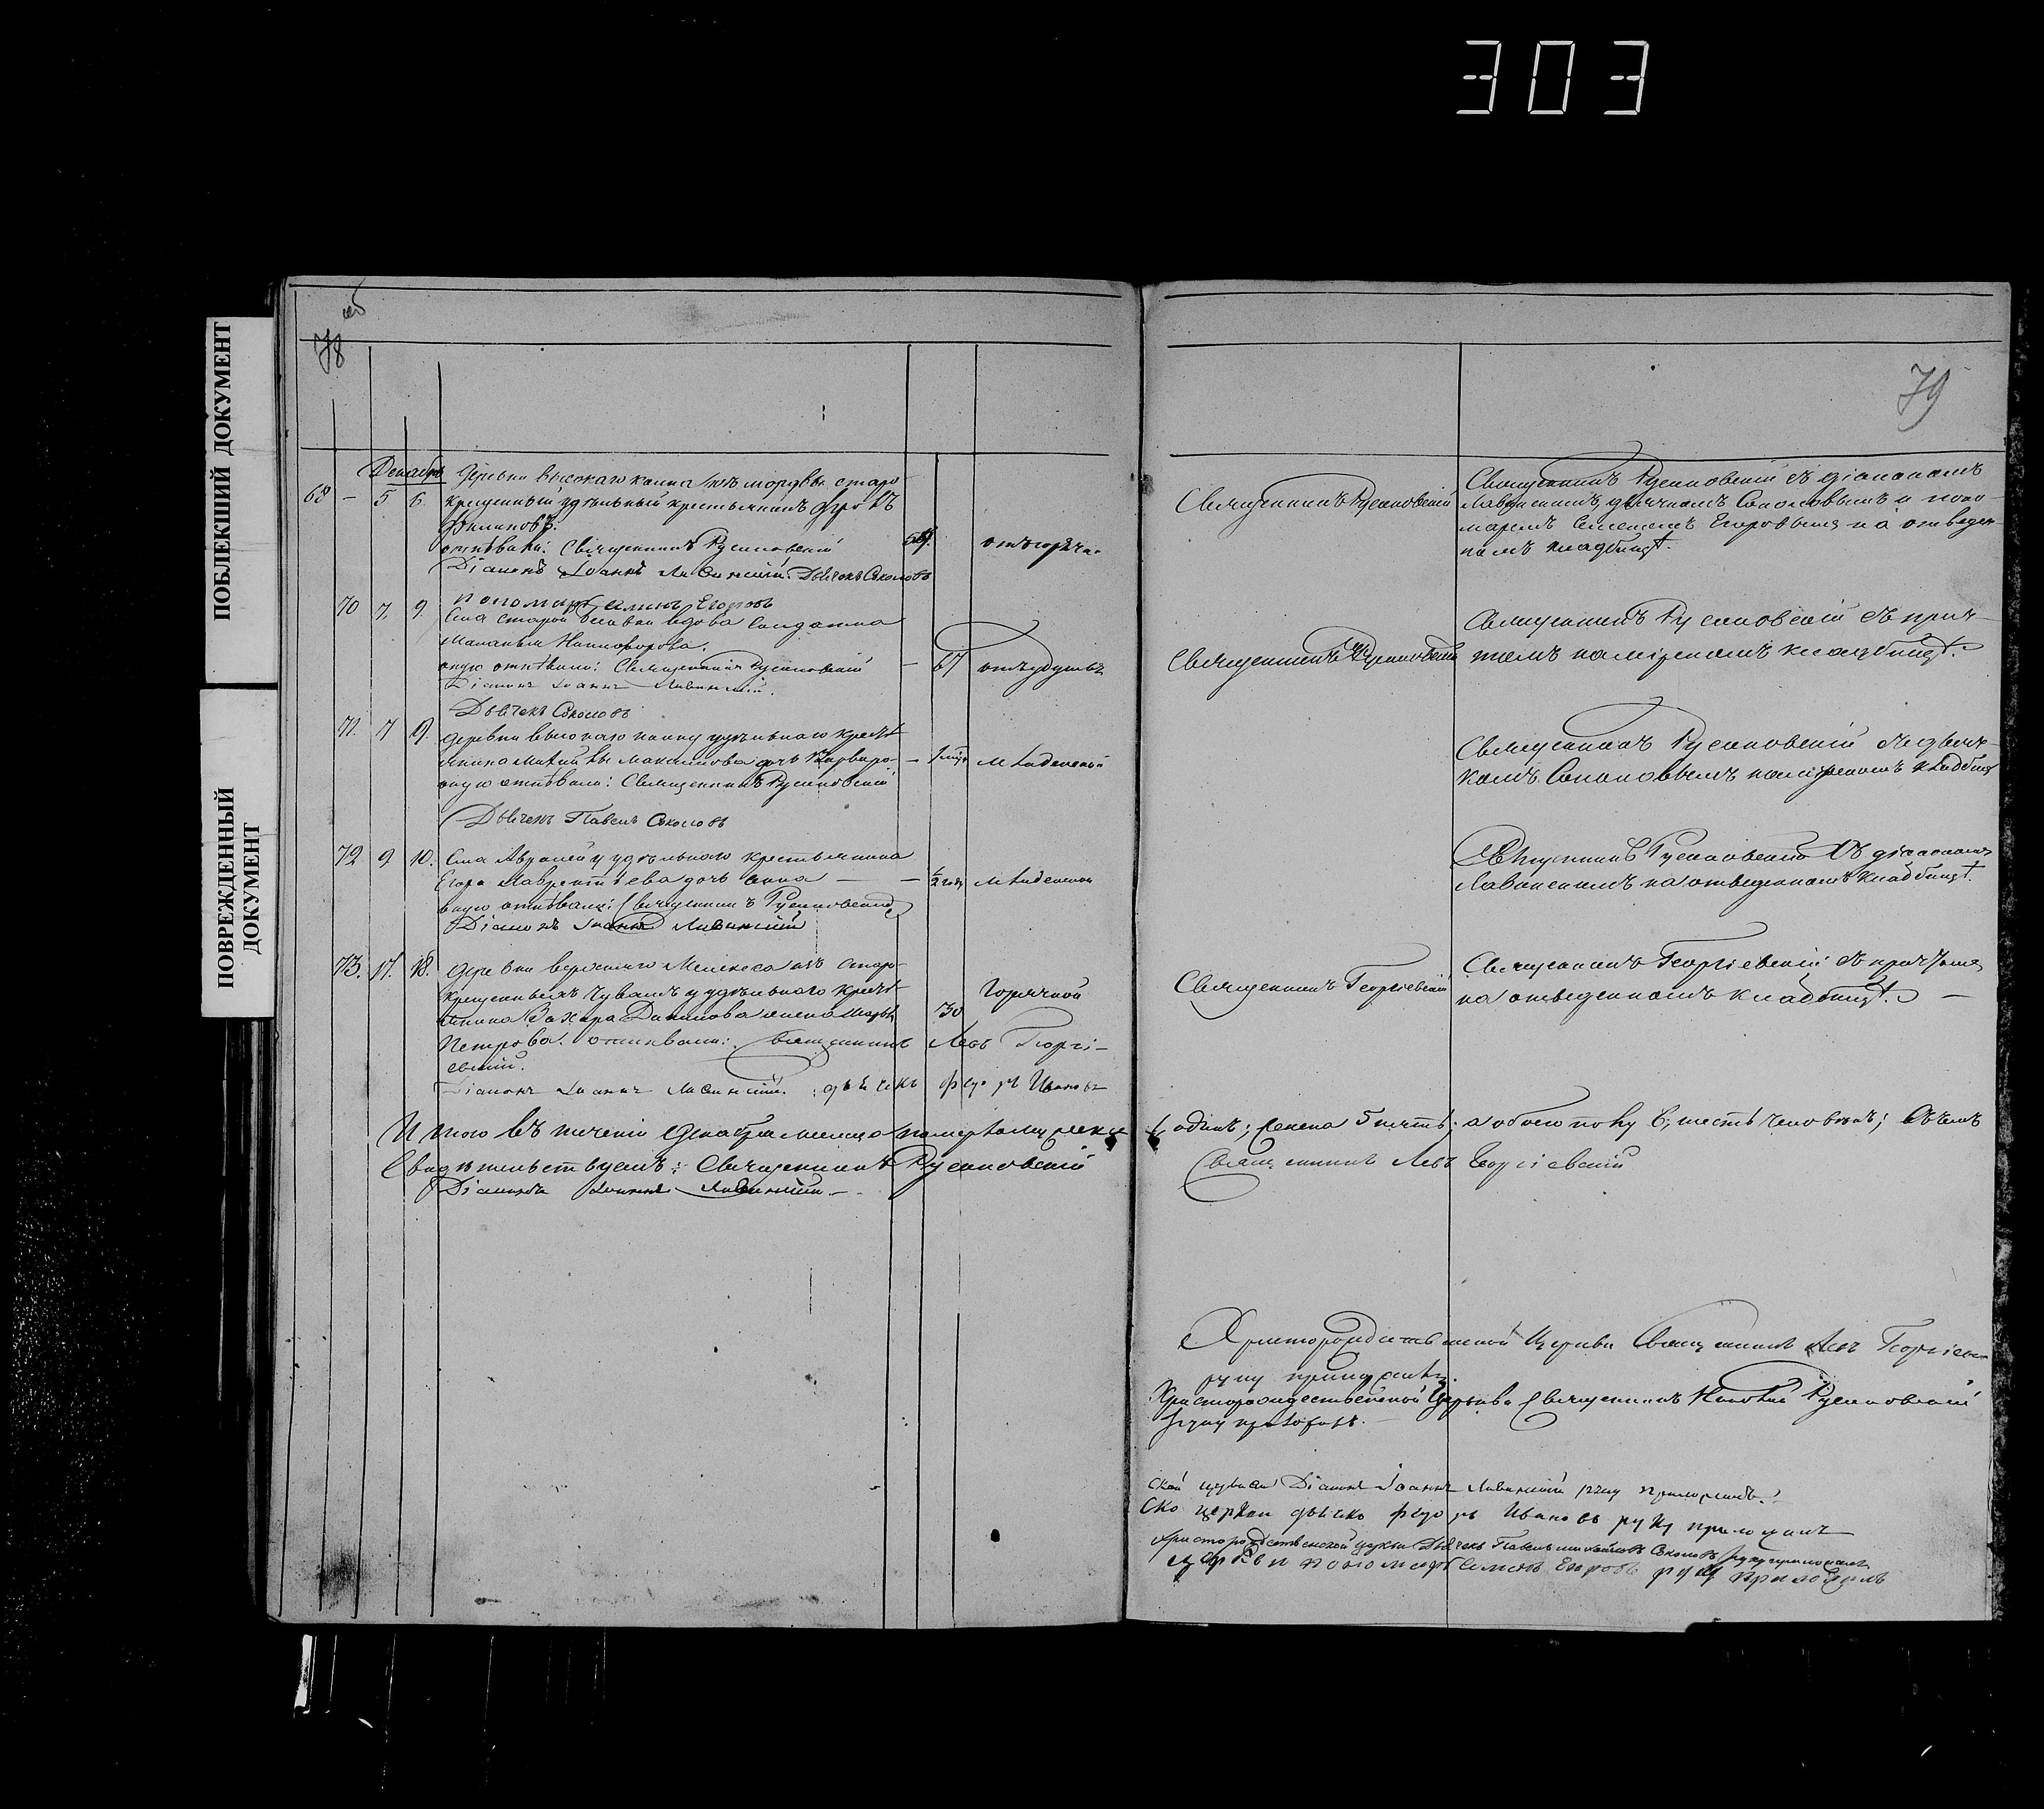 303
ПОБЛЕКШИЙ ДОКУМЕНТ
ПОВРЕЖДЕННЫЙ
ДОКУМЕНТ
78 об
79
Декабрь
69 – 5 6. Деревни Высокаго колка изъ мордвы старо
крещенный удѣльный крестьянинъ
Филиповъ.
отпѣвали: Священникъ Русановскій
Діаконъ Іоаннъ Дьячекъ Соколовъ
пономарь Семенъ Егоровъ
отъ горячк.
Священникъ Русановскій
Священникъ Русановскій съ діакономъ
дьячкомъ Соколовымъ и поно-
маремъ Семеномъ Егоровымъ на отведен-
номъ кладбищѣ.
70 7. 9. Села Старой вдова солдатка
Маланья Никифорова.
оную отпѣвали: Священникъ Русановскій
Діаконъ Іоаннъ
Дьячекъ Соколовъ
– 67 отъ удушья
Священникъ Русановскій
Священникъ Русановскій съ прич-
томъ на мірскомъ кладбищѣ.
71. 7 9. Деревни Высокаго колку удѣльнаго кресть
янина Максимова дочь Варвара
оную отпѣвали: Священникъ Русановскій
Дьячекъ Павелъ Соколовъ
– младенской
Священникъ Русановскій съ дьяч-
комъ Соколовымъ на мірскомъ кладбищ
72 9 10. Села Авралей у удѣльнаго крестьянина
Егора Лаврентьева дочь Анна –
оную отпѣвали: Священникъ Русановскій
Діаконъ Іоаннъ
– 1/2 года младенской
Священникъ Русановскій съ діакономъ
на отведенномъ кладбищѣ.
73. 17. 18. Деревни Верхняго Мелекеса изъ старо-
крещенныхъ чувашъ у удѣльнаго кресть
янина Захара Данилова жена Марья
Петрова. отпѣвали: Священникъ Левъ Георгі-
евскій.
Діаконъ Іоаннъ дьячекъ Федоръ Ивановъ
30 Горячкой
Священникъ Георгіевскій
Священникъ Георгіевскій съ причтомъ
на отведенномъ кладбищѣ. –
Итого въ теченіи Декабря месяца померло мужеска 1, одинъ; женска 5 пять; а обоего полу 6, шесть человѣкъ; въ чемъ
Свидѣтельствуемъ: Священникъ Русановскій
Священникъ Левъ Георгіевскій
Діаконъ Іоаннъ
Христорождественской Церкви Священникъ Левъ Георгіев
руку приложилъ.
Христорождественской Церкви Священникъ Русановскій
руку приложилъ.
ской церкви Діаконъ Іоаннъ руку приложилъ.
ско церкви дьячко Федоръ Ивановъ руку приложилъ
Христорождественской церкви Дьячекъ Павелъ Соколовъ руку приложилъ
церкви пономарь Семенъ Егоровъ руку приложилъ